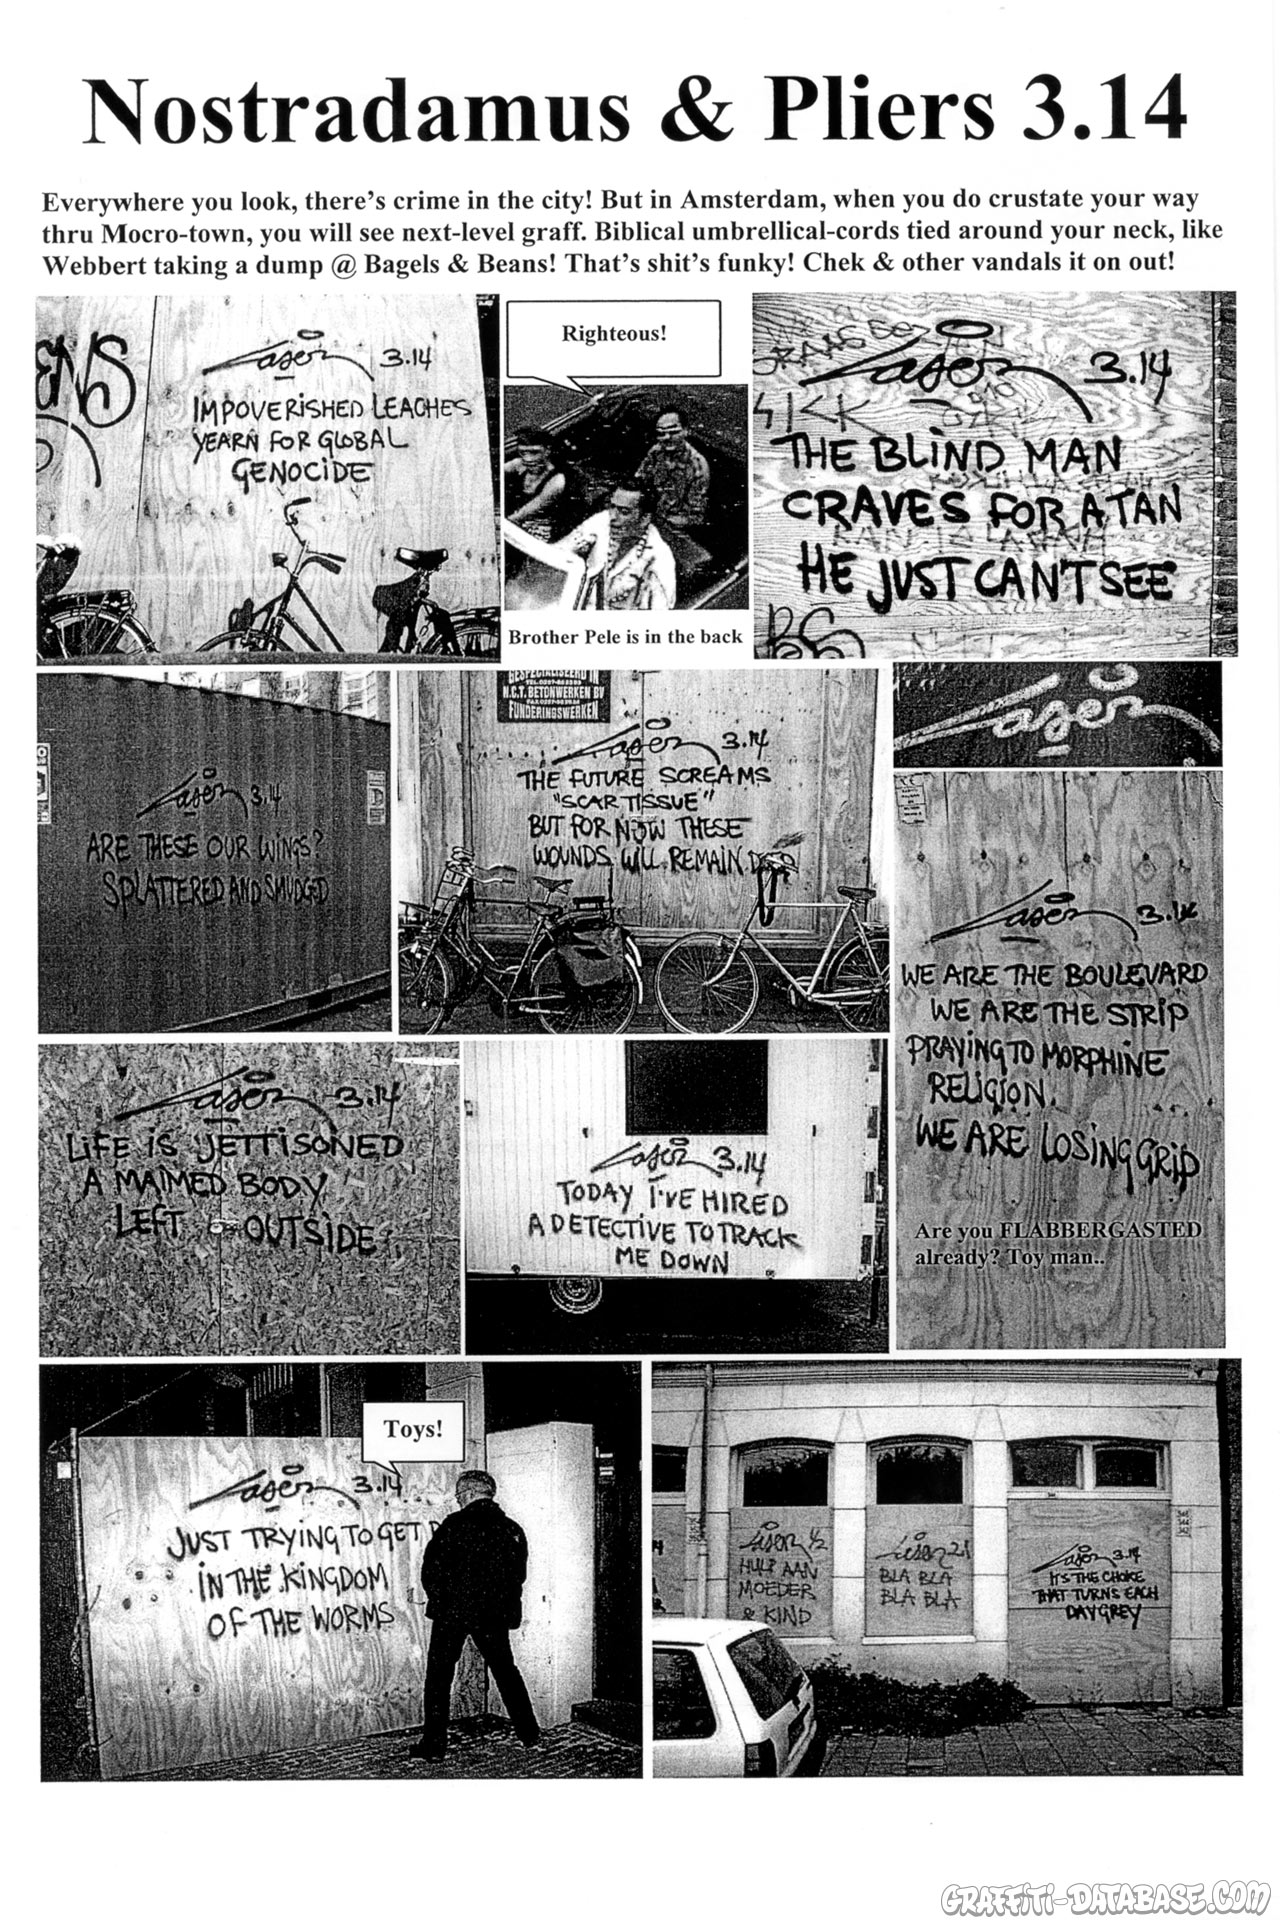 Nostradamus & Pliers 3.14
Everywhere you look, there's crime in the city! But in Amsterdam, when you do crustate your way
thru Mocro-town, you will see next-level graff. Biblical umbrellical-cords tied around your neck, like
Webbert taking a dump @ Bagels & Beans! That's shit's funky! Chek & other vandals it on out!
ENS
Laser 3.14
IMPOVERISHED LEACHES
YEARN FOR GLOBAL
GENOCIDE
Righteous!
Brother Pele is in the back
Laser 3.14
THE BLIND MAN
CRAVES FOR A TAN
HE JUST CAN'T SEE
Laser 3.14
ARE THESE OUR WINGS?
SPLATTERED AND SMUDGED
GESPECIALISEERD IN
N.C.T. BETONWERKEN BV
FUNDERINGSWERKEN
Laser 3.14
THE FUTURE SCREAMS
"SCAR TISSUE"
BUT FOR NOW THESE
WOUNDS WILL REMAIN
Laser
Laser 3.14
WE ARE THE BOULEVARD
WE ARE THE STRIP
PRAYING TO MORPHINE
RELIGION.
WE ARE LOSING GRIP
Are you FLABBERGASTED
already? Toy man..
Laser 3.14
LIFE IS JETTISONED
A MAIMED BODY
LEFT OUTSIDE
Laser 3.14
TODAY I'VE HIRED
A DETECTIVE TO TRACK
ME DOWN
Toys!
Laser 3.14
JUST TRYING TO GET
IN THE KINGDOM
OF THE WORMS
Laser 1/2
HULP AAN
MOEDER
& KIND
Laser 2.1
BLA BLA
BLA BLA
Laser 3.14
IT'S THE CHOKE
THAT TURNS EACH
DAY GREY
GRAFFITI-DATABASE.COM